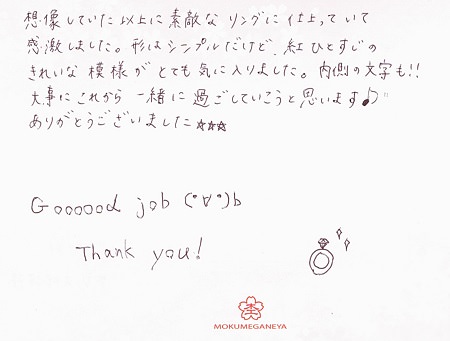 想像していた以上に素敵なリングに仕上っていて
感激しました。形はシンプルだけど、紅ひとすじの
きれいな模様がとても気に入りました。内側の文字も!!
大事にこれから一緒に過ごしていこうと思います♪
ありがとうございました☆☆☆
Goooood job (°∀°)b
Thank you!
MOKUMEGANEYA